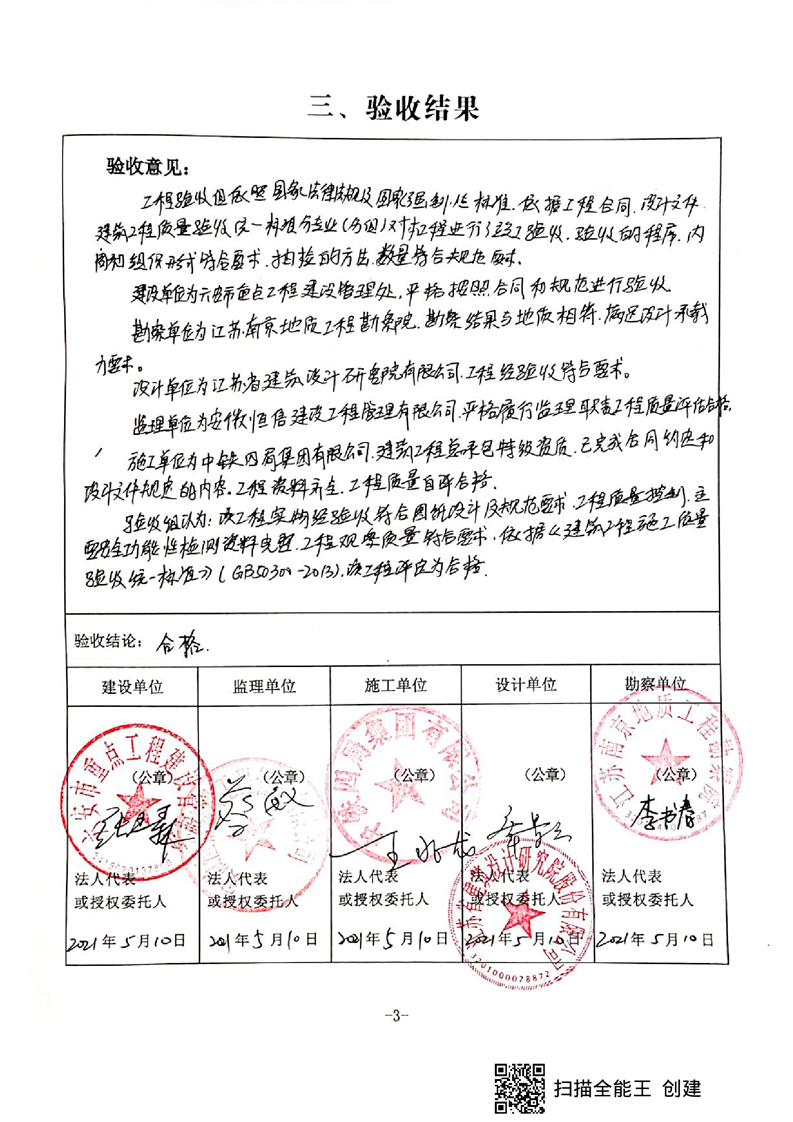 三、验收结果
验收意见：
工程验收组依照国家法律法规及国家强制性标准.依据工程合同.设计文件.
建筑工程质量验收统一标准分专业(分组)对本工程进行了竣工验收.验收的程序.内
容和组织形式符合要求.抽检的方法.数量符合规范要求.
建设单位为六安市重点工程建设管理处,严格按照合同和规范进行验收
勘察单位为江苏南京地质工程勘察院.勘察结果与地质相符.满足设计承载
力要求.
设计单位为江苏省建筑设计研究院有限公司.工程经验收符合要求.
监理单位为安徽恒信建设工程管理有限公司.严格履行监理职责工程质量评估合格.
施工单位为中铁四局集团有限公司.建筑工程总承包特级资质.已完成合同约定和
设计文件规定的内容。工程资料齐全.工程质量自评合格.
验收组认为:该工程实物经验收符合图纸设计及规范要求.工程质量控制.主
要安全功能性检测资料完整.工程观感质量符合要求.依据《建筑工程施工质量
验收统一标准》(GB50300-2013).该工程评定为合格.
验收结论：合格.
建设单位 监理单位 施工单位 设计单位 勘察单位
（公章） （公章） （公章） （公章） （公章）
李书春
法人代表 法人代表 法人代表 法人代表 法人代表
或授权委托人 或授权委托人 或授权委托人 或授权委托人 或授权委托人
2021年5月10日 2021年5月10日 2021年5月10日 2021年5月10日 2021年5月10日
江苏南京地质工程勘察院
江苏省建筑设计研究院股份有限公司
3201000078872
-3-
扫描全能王 创建